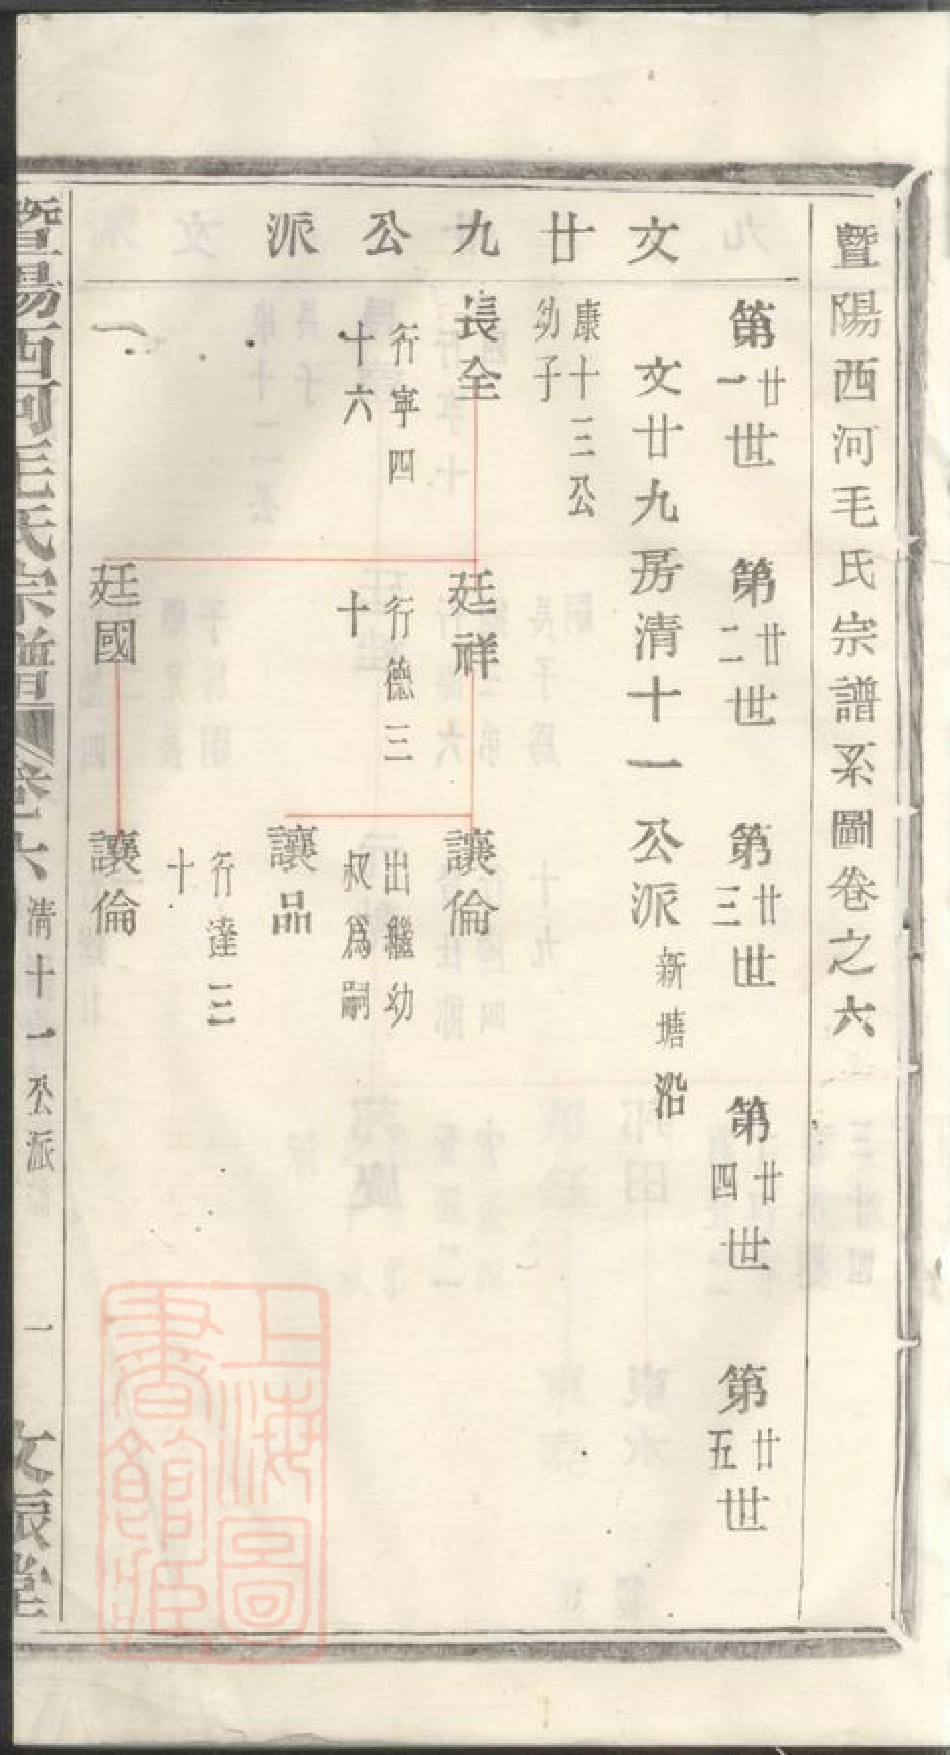 暨陽西河毛氏宗譜系圖卷之六
文廿九公派
第廿一世
第廿二世
第廿三世
第廿四世
第廿五世
文廿九房清十一公派新塘沿
康十三公
幼子
長全
行寧四
十六
廷祥
行德三
十
讓倫
出繼幼
叔爲嗣
讓品
行達三
十
廷國
讓倫
暨陽西河毛氏宗譜
卷六
清十一公派
一
文辰堂
上海圖
書館藏